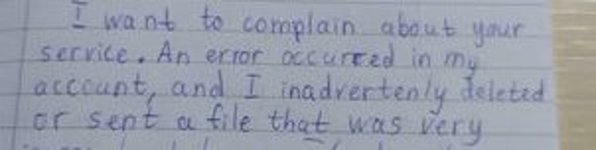 I want to complain about your
service. An error occurred in my
account, and I inadvertenly deleted
or sent a file that was very